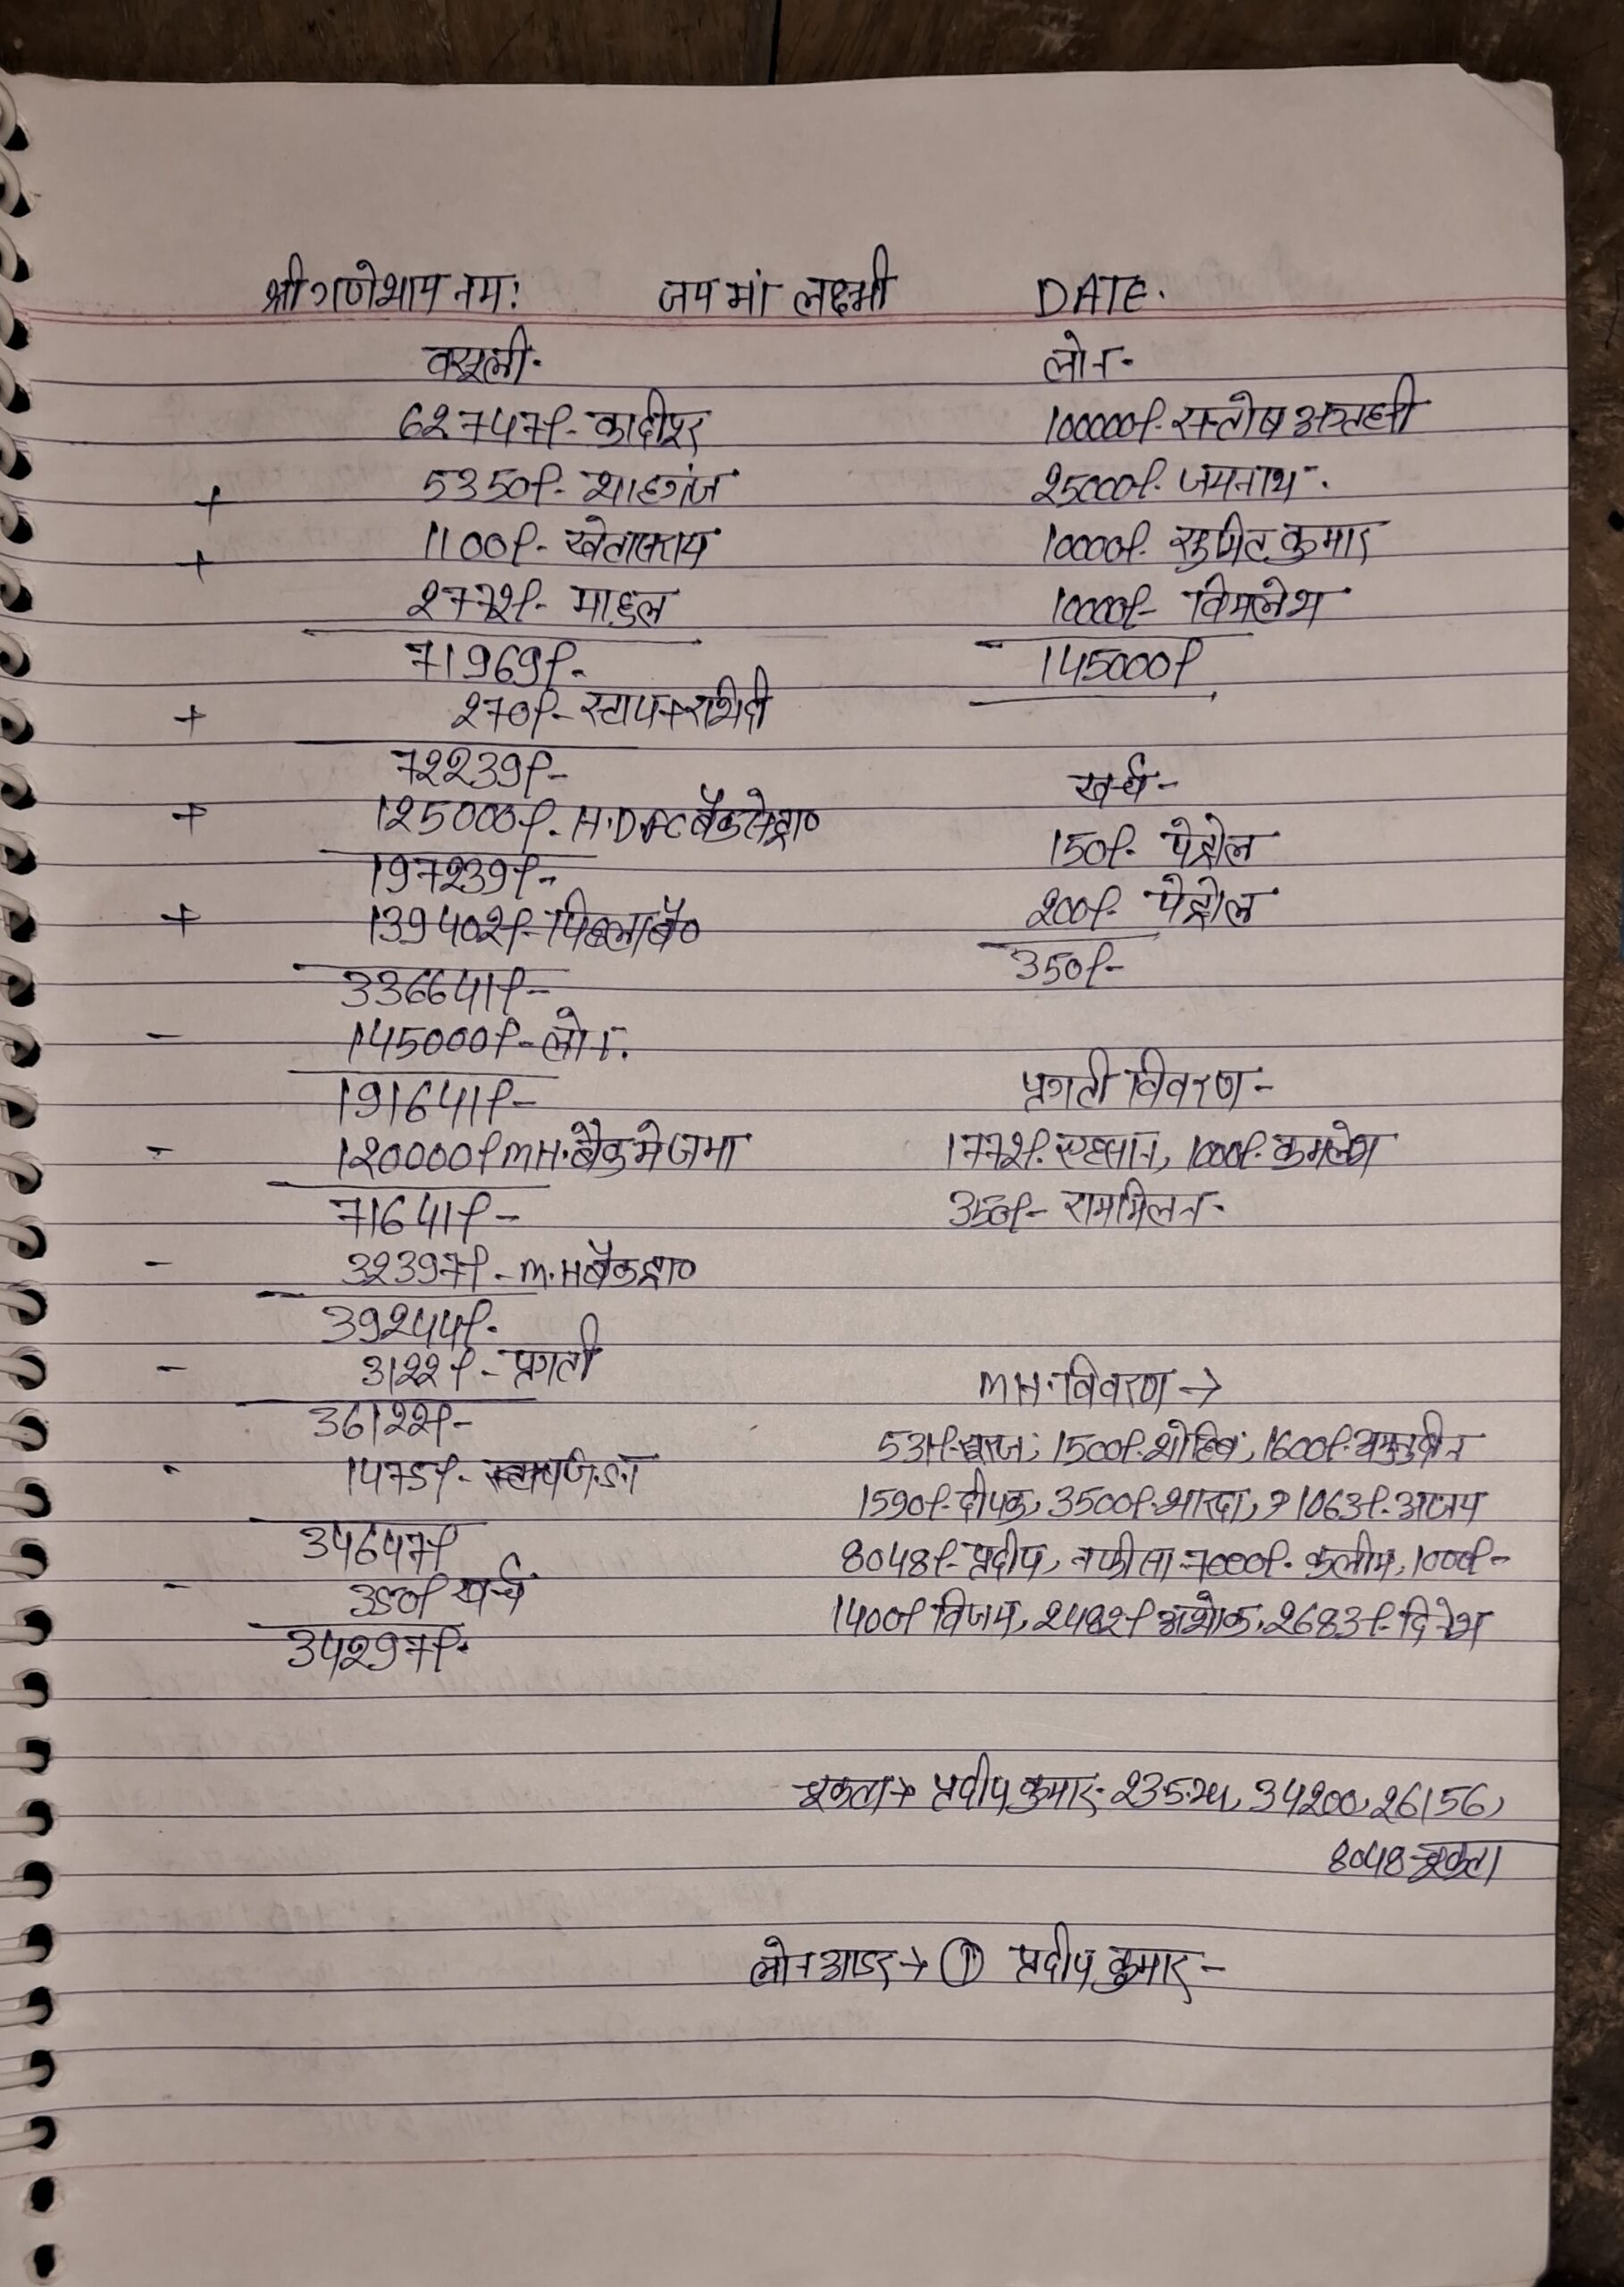 श्री गणेशाय नमः जय मां लक्ष्मी DATE.
वसूली.
62747/- कादीपुर
+ 5350/- शाहगंज
+ 1100/- खेतासराय
2772/- माहुल
71969/-
+ 270/-
72239/-
+ 125000/- H.D.F.C बैंक से ड्रा०
197239/-
+ 139402/- पिछला बै०
336641/-
- 145000/- लोन.
191641/-
- 120000/- M.H. बैंक मे जमा
71641/-
- 32397/- M.H बैंक ड्रा०
39244/-
- 3122/- प्रगती
36122/-
- 1475/-
34647/-
- 350/- खर्च
34297/-
लोन-
100000/- सन्तोष
25000/- जयनाथ.
10000/- सुमित कुमार
10000/- विमलेश
145000/-
खर्च-
150/- पेट्रोल
200/- पेट्रोल
350/-
प्रगती विवरण-
1772/- एहसान, 1000/- कमलेश
350/- राममिलन.
M.H. विवरण →
531/- सूरज, 1500/- शोहिब, 1600/-
1590/- दीपक, 3500/- शारदा, 1063/- अजय
8048/- प्रदीप, नफीसा 7000/- कलीम, 1000/-
1400/- विजय, 2482/- अशोक, 2683/- दिनेश
चुकता → प्रदीप कुमार- 34200, 26156,
8048 चुकता
लोन आडर → ① प्रदीप कुमार-